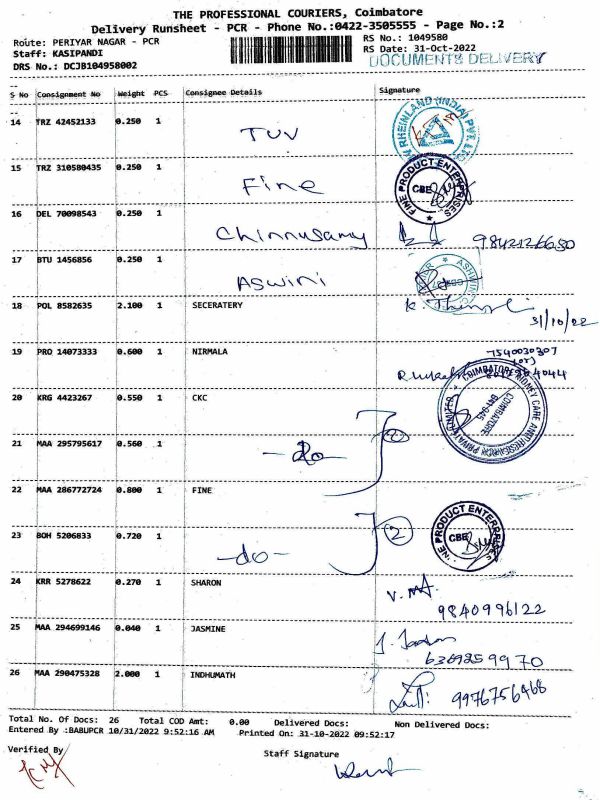 THE PROFESSIONAL COURIERS, Coimbatore
Delivery Runsheet - PCR - Phone No.:0422-3505555 - Page No.:2
Route: PERIYAR NAGAR - PCR
RS No.: 1049580
Staff: KASIPANDI
RS Date: 31-Oct-2022
DRS No.: DCJB104958002
DOCUMENTS DELIVERY
S No Consignment No Weight PCS Consignee Details Signature
14 TRZ 42452133 0.250 1 TUV
RHEINLAND (INDIA) PVT. LTD
15 TRZ 310580435 0.250 1 Fine
FINE PRODUCT ENTERPRISES CBE
16 DEL 70098543 0.250 1 Chinnusamy 9842126650
17 BTU 1456856 0.250 1 Aswini
18 POL 8582635 2.100 1 SECERATERY
31/10/22
19 PRO 14073333 0.600 1 NIRMALA 7540030307
20 KRG 4423267 0.550 1 CKC
COIMBATORE KIDNEY CARE AND RESEARCH PRIVATE LIMITED COIMBATORE
21 MAA 295795617 0.560 1 -do-
22 MAA 286772724 0.800 1 FINE
23 BOH 5206833 0.720 1 -do- 2
FINE PRODUCT ENTERPRISES CBE
24 KRR 5278622 0.270 1 SHARON
9840996122
25 MAA 294699146 0.040 1 JASMINE
6369859970
26 MAA 290475328 2.000 1 INDHUMATH 9976756468
Total No. Of Docs: 26 Total COD Amt: 0.00 Delivered Docs: Non Delivered Docs:
Entered By :BABUPCR 10/31/2022 9:52:16 AM Printed On: 31-10-2022 09:52:17
Verified By
Staff Signature